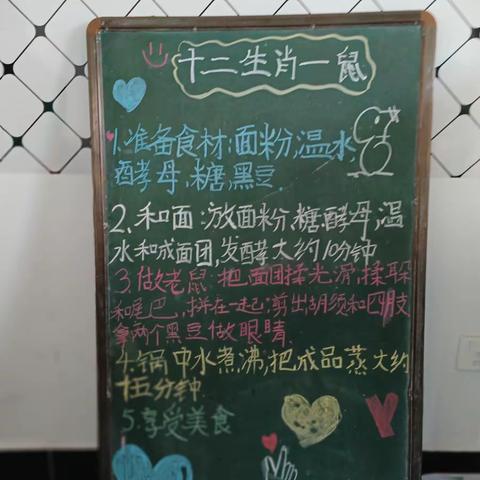 十二生肖一鼠
1.准备食材:面粉,温水,
酵母,糖,黑豆.
2.和面:放面粉,糖,酵母,温
水和成面团,发酵大约10分钟
3.做老鼠:把面团揉光滑,揉耳朵
和尾巴,拼在一起;剪出胡须和四肢
拿两个黑豆做眼睛.
4.锅中水煮沸,把成品蒸大约
十五分钟
5.享受美食